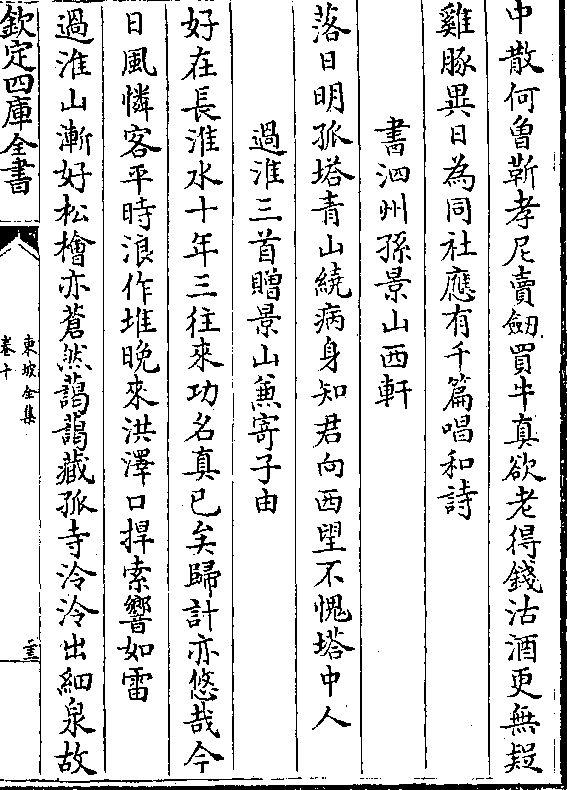 中散何曽靳孝尼賣劒買牛真欲老得錢沽酒更無疑
雞豚異日為同社應有千篇唱和詩
書泗州孫景山西軒
落日明孤塔青山繞病身知君向西望不愧塔中人
過淮三首贈景山兼寄子由
好在長淮水十年三往來功名真已矣歸計亦悠哉今
日風憐客平時浪作堆晚來洪澤口捍索響如雷
過淮山漸好松檜亦蒼然藹藹藏孤寺泠泠出細泉故
欽定四庫全書
東坡全集
卷十